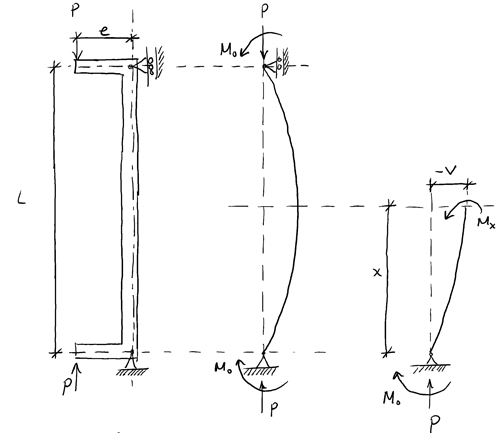 P
e
L
P
P
M₀
M₀
P
-V
Mx
x
M₀
P